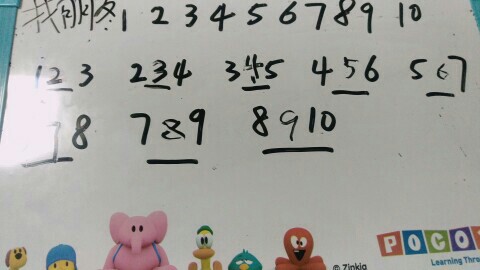 我 1 2 3 4 5 6 7 8 9 10
1 2 3 2 3 4 3 4 5 4 5 6 5 6 7
7 8 7 8 9 8 9 10
© Zinkia
POCO
Learning Thro